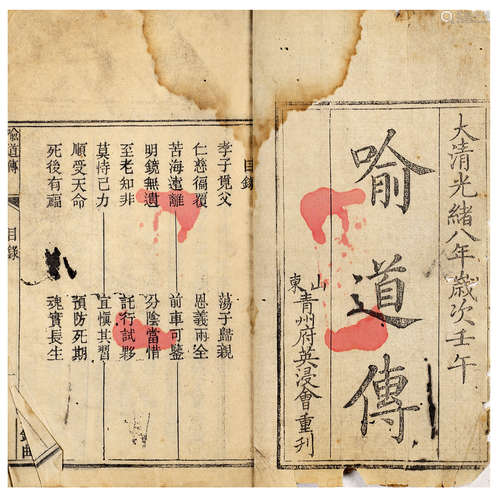 大清光緒八年歲次壬午
喻道傳
山東青州府英浸會重刊
目錄
孝子覓父 蕩子歸親
仁慈徧覆 恩義兩全
苦海遠離 前車可鑒
明鏡無遺 分陰當惜
至老知非 託行試夥
莫恃己力 宜慎其習
順受天命 預防死期
死後有福 魂實長生
喻道傳 目錄